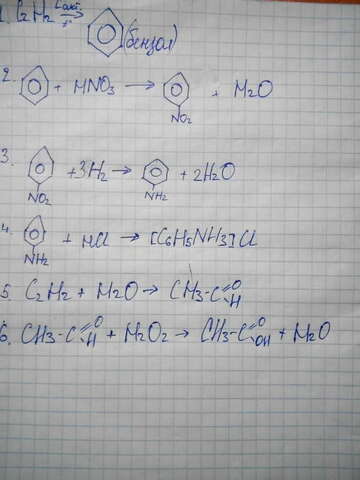 1. C2H2 Cакт. t° → (бензол)
2. + HNO3 → NO2 + H2O
3. NO2 + 3H2 → NH2 + 2H2O
4. NH2 + HCl → [C6H5NH3]Cl
5. C2H2 + H2O → CH3-C=O H
6. CH3-C=O H + H2O2 → CH3-C=O OH + H2O